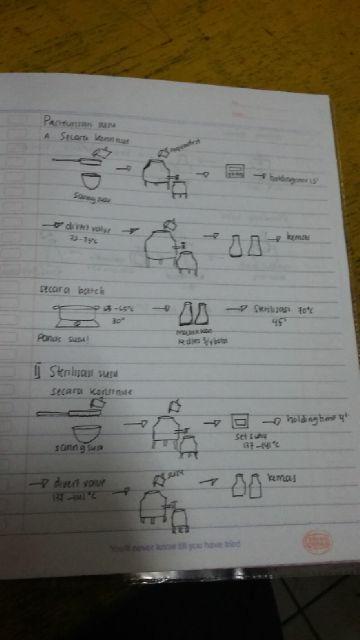 Pasteurisasi susu
A. Secara kontinue
saring susu
holding time 15"
divert valve
72 - 75°C
kemas
secara batch
63 - 65°C
30"
Panas susu!
masukkan
ke dlm
Sterilisasi 70°C
45'
Sterilisasi susu
secara kontinue
saring susu
set suhu
137 - 141 °C
holding time 4"
divert valve
137 - 141 °C
kemas
You'll never know till you have tried